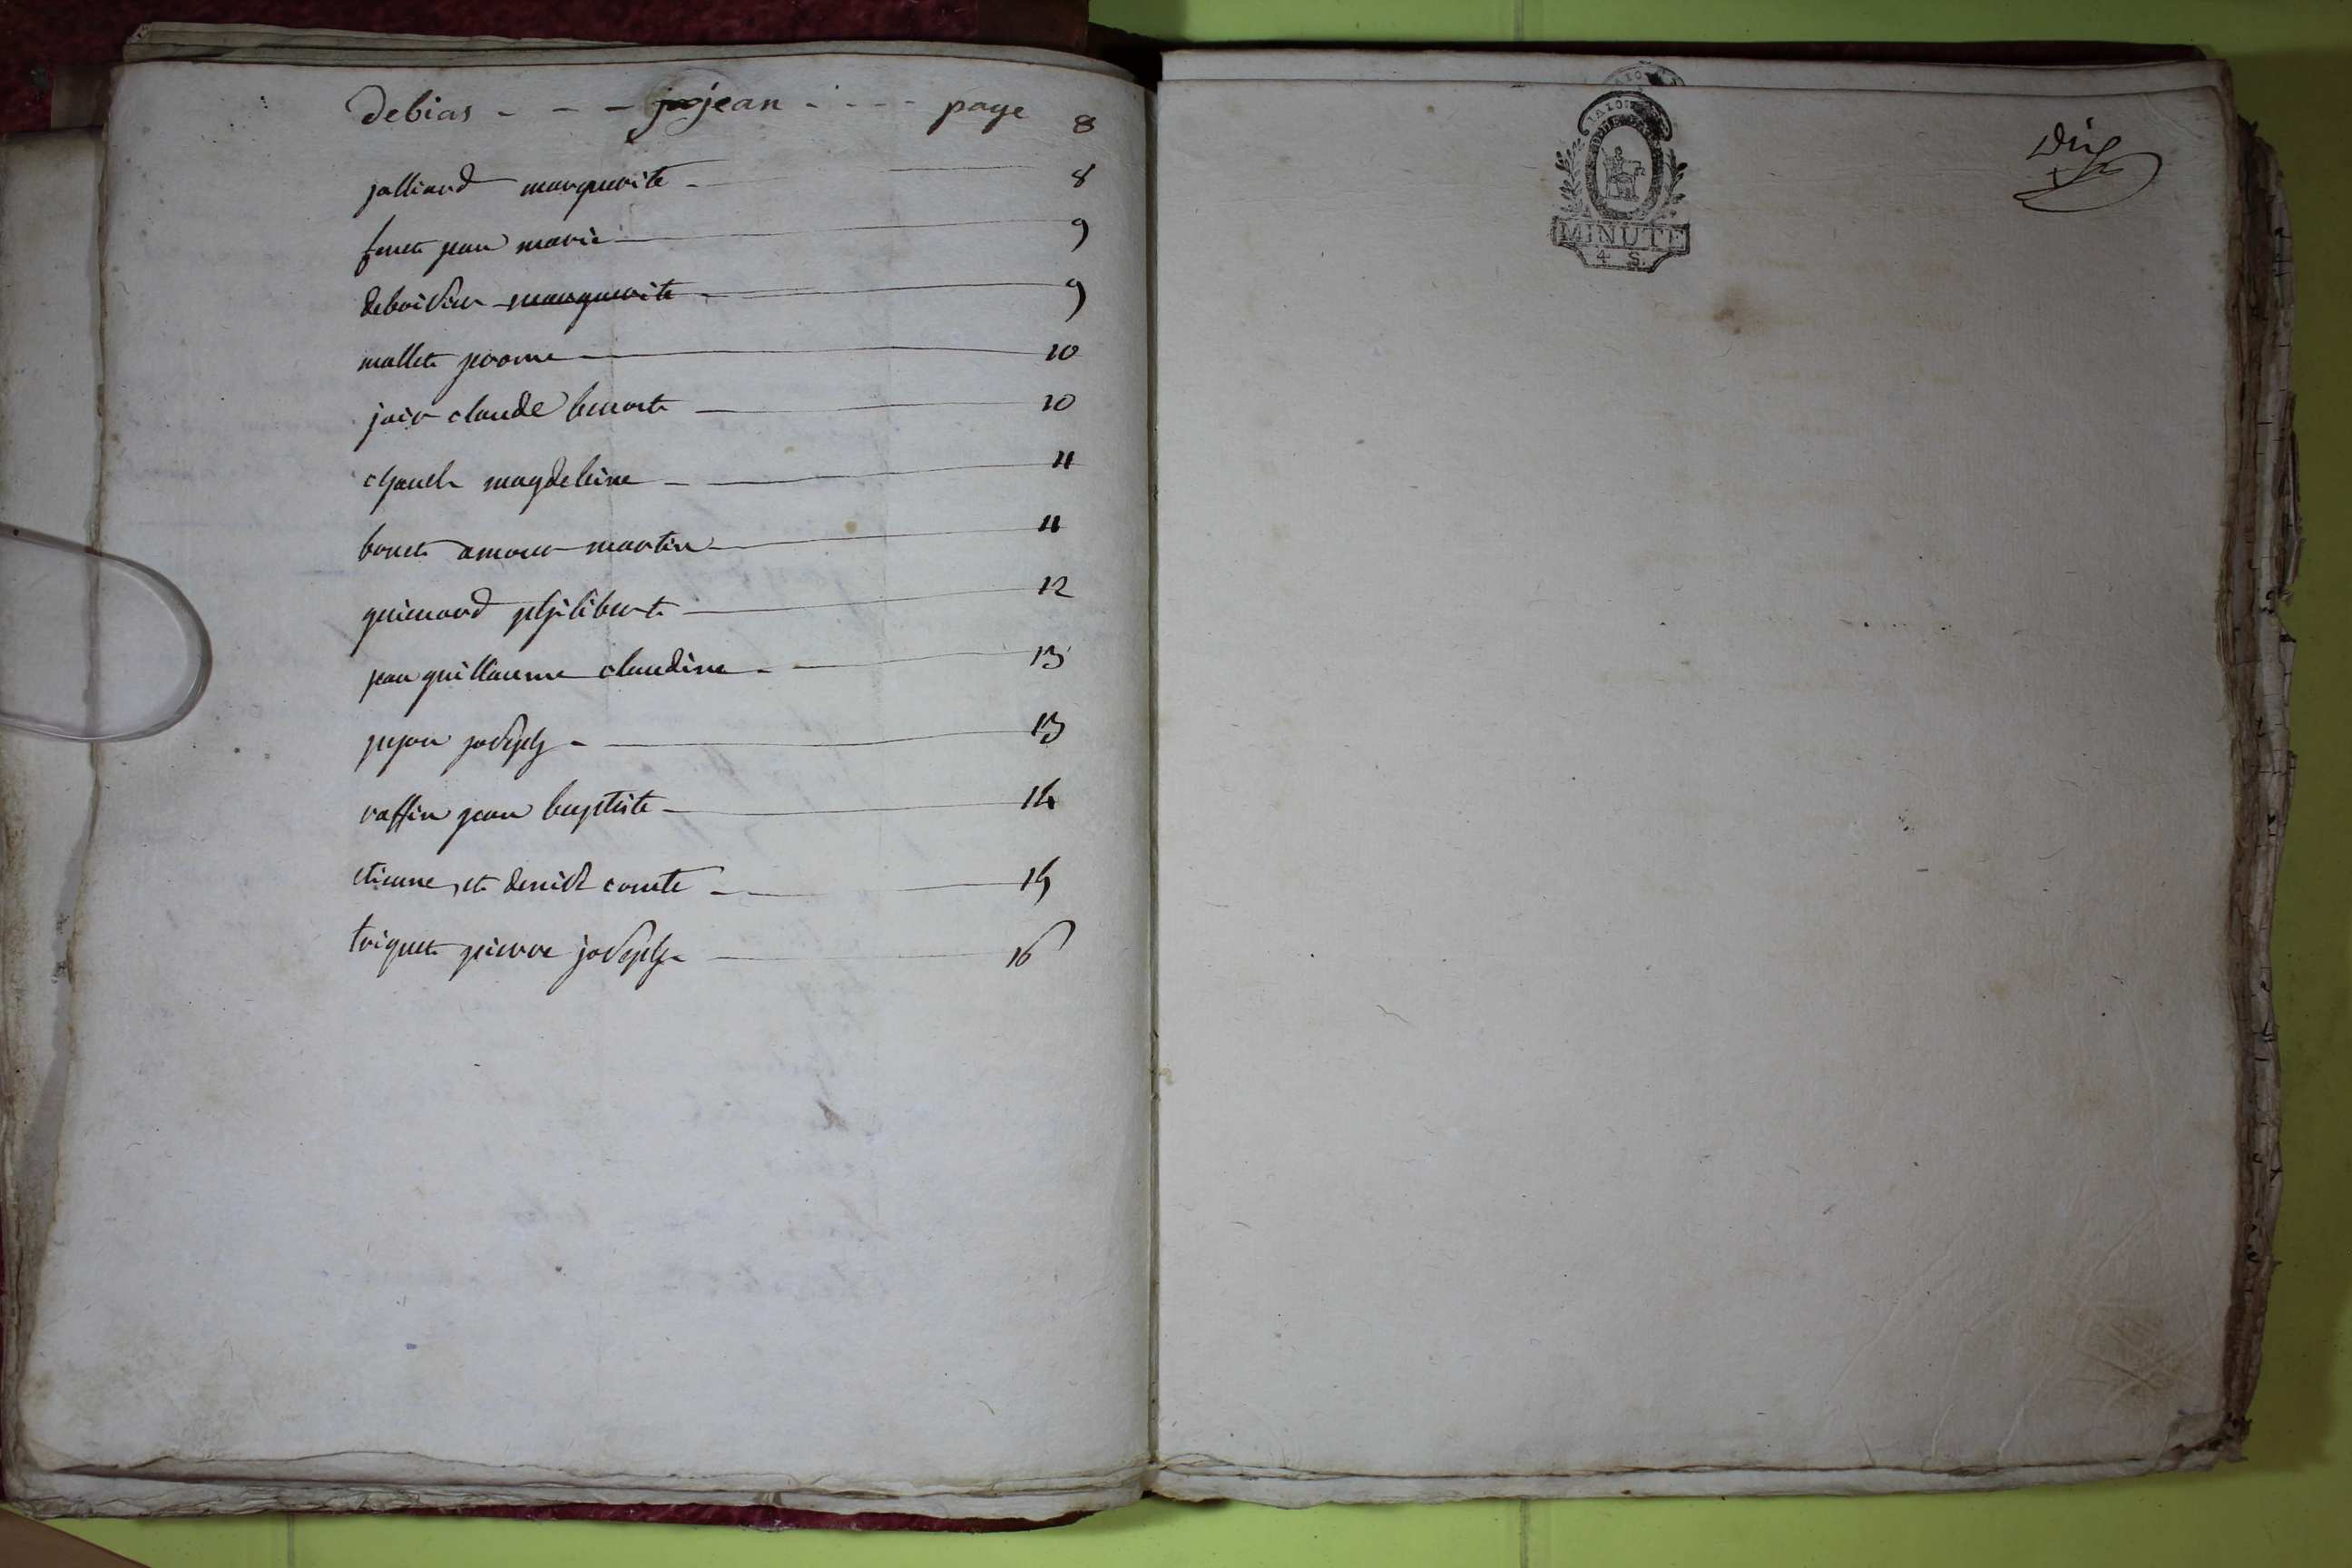 debias - - - jean - - - - page 8
jalliard marguerite - 8
jean marie 9
marguerite - 9
mallet 10
claude benoit 10
magdeleine - 11
bouet amour martin 11
guienard philibert 12
jean guillaume claudine - 13
pejon joseph - 13
raffin jean baptiste 14
etienne, et denist comte 15
triquet pierre joseph 16
MINUTE
4 S.